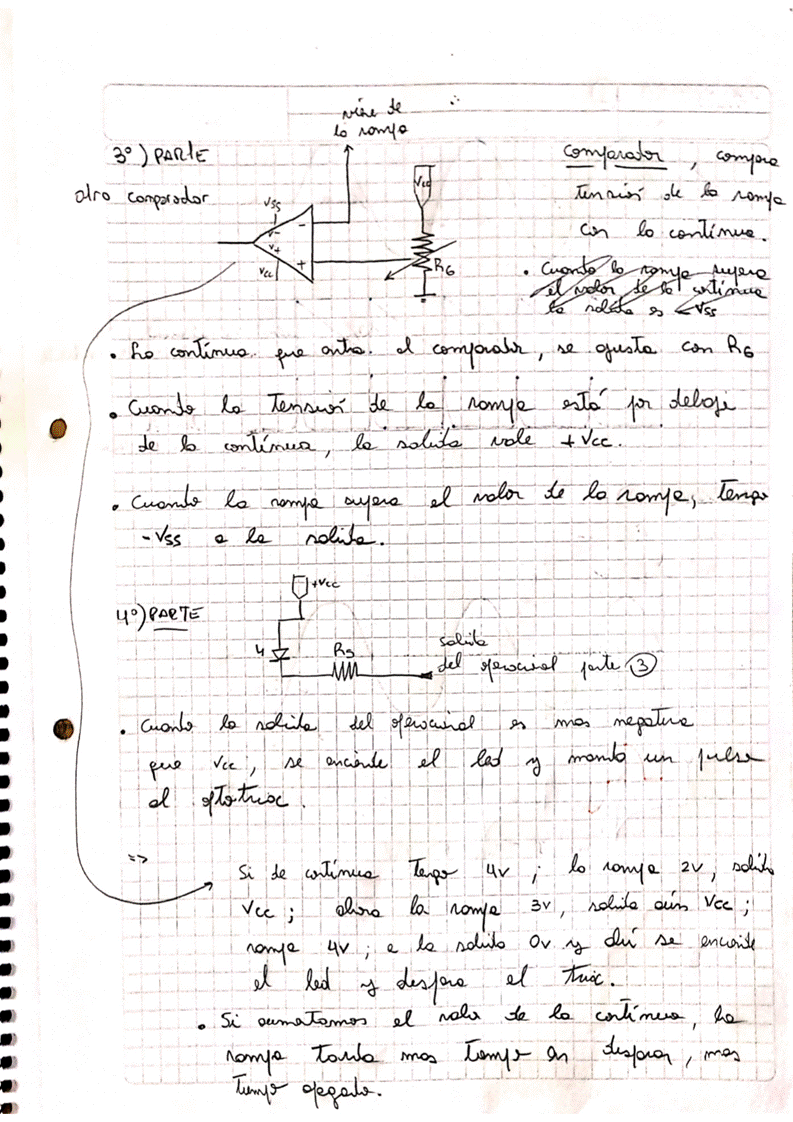 viene de
la rampa
3°) PARTE
otro comparador
VSS
V-
V+
VCC
-
+
VCC
R6
Comparador, compara
tensión de la rampa
con la continua.
• Cuando la rampa supera
el valor de la continua
la salida es -VSS
• La continua que entra al comparador, se ajusta con R6
• Cuando la tensión de la rampa está por debajo
de la continua, la salida vale +Vcc.
• Cuando la rampa supera el valor de la rampa, tengo
-VSS a la salida.
4°) PARTE
+Vcc
4
salida
del operacional parte 3
• Cuando la salida del operacional es mas negativa
que Vcc, se enciende el led y manda un pulso
al optotriac.
=>
Si de continua tengo 4V; la rampa 2V, salida
Vcc; ahora la rampa 3V, salida aún Vcc;
rampa 4V; a la salida 0V y ahí se enciende
el led y dispara el triac.
• Si aumentamos el valor de la continua, la
rampa tarda mas tiempo en disparar, mas
tiempo apagado.